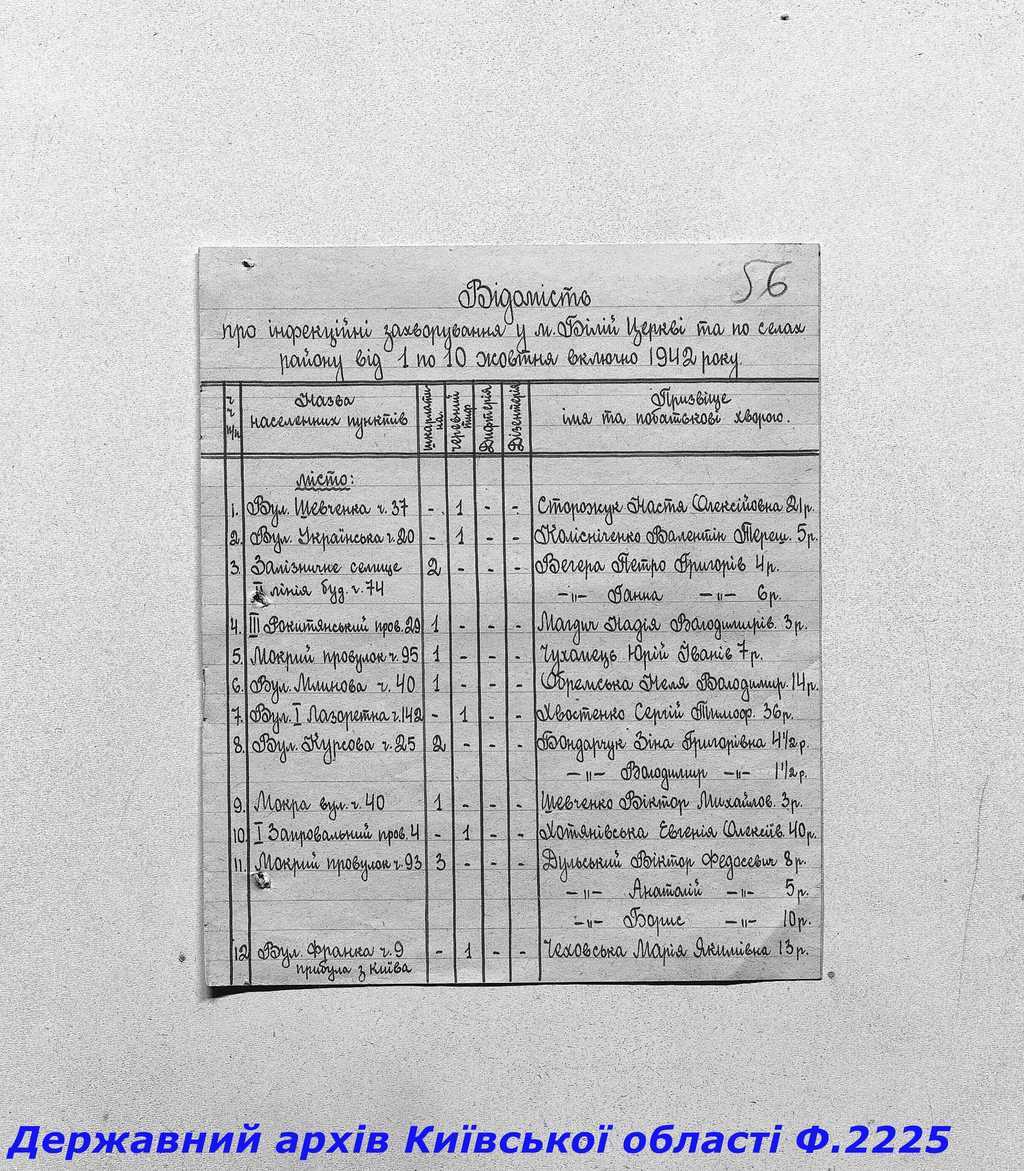 56
Відомість
про інфекційні захворування у м. Білій Церкві та по селах
району від 1 по 10 жовтня включно 1942 року.
ч ч п/п Назва населенних пунктів шкарлатина черевний тиф Дифтерія Дізентерія Призвіще імя та побатькові хворого.
місто:
1. Вул. Шевченка ч. 37 - 1 - - Сторожук Настя Олексійовна 21 р.
2. Вул. Українська ч. 20 - 1 - - Колісніченко Валентін Тереш. 5 р.
3. Залізничне селище 2 - - - Вегера Петро Григорів 4 р.
II лінія буд. ч. 74 -"- Ганна -"- 6 р.
4. III Рокитянський пров. 29 1 - - - Магдич Надія Володимирів. 3 р.
5. Мокрий провулок ч. 95 1 - - - Чухамець Юрій Іванів 7 р.
6. Вул. Млинова ч. 40 1 - - - Обремська Неля Володимир. 14 р.
7. Вул. I Лазоретна ч. 142 - 1 - - Хвостенко Сергій Тимоф. 36 р.
8. Вул. Курсова ч. 25 2 - - - Бондарчук Зіна Григорівна 4 1/2 р.
-"- Володимир -"- 1 1/2 р.
9. Мокра вул. ч. 40 1 - - - Шевченко Віктор Михайлов. 3 р.
10. I Запровальний пров. 4 - 1 - - Хотянівська Евгенія Олексіїв. 40 р.
11. Мокрий провулок ч. 93 3 - - - Дульський Віктор Федосевич 8 р.
-"- Анатолій -"- 5 р.
-"- Борис -"- 10 р.
12 Вул. Франка ч. 9 - 1 - - Чеховська Марія Якимівна 13 р.
прибула з Київа
Державний архів Київської області Ф.2225